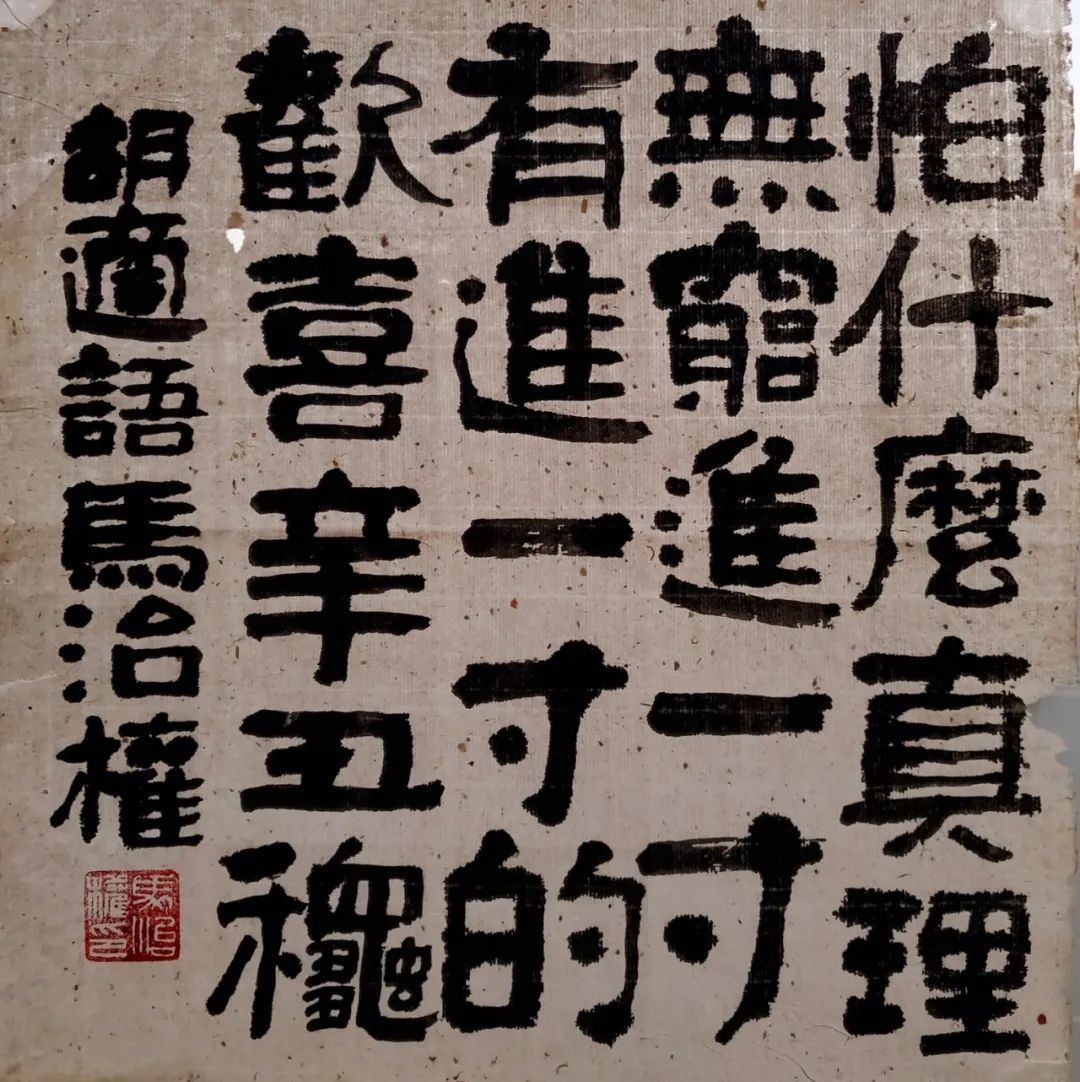 怕什麼真理
無竆進一寸
有進一寸的
歡喜辛丑龝
胡適語馬治權
馬治
權印